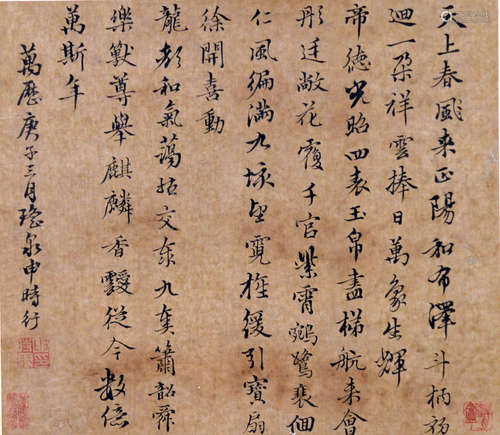 天上春来正陽和布澤斗柄初
迴一朵祥雲捧日萬象生輝
帝德光昭四表玉帛盡梯航来會
彤廷敞花覆千官紫霄鵷鷺裴佪
仁風徧滿九垓望霓旌緩引寶扇
徐開喜動
龍顔和氣藹交泰九奏簫韶舜
樂獸尊舉麒麟香靉從今數億
萬斯年
萬曆庚子三月瑤泉申時行